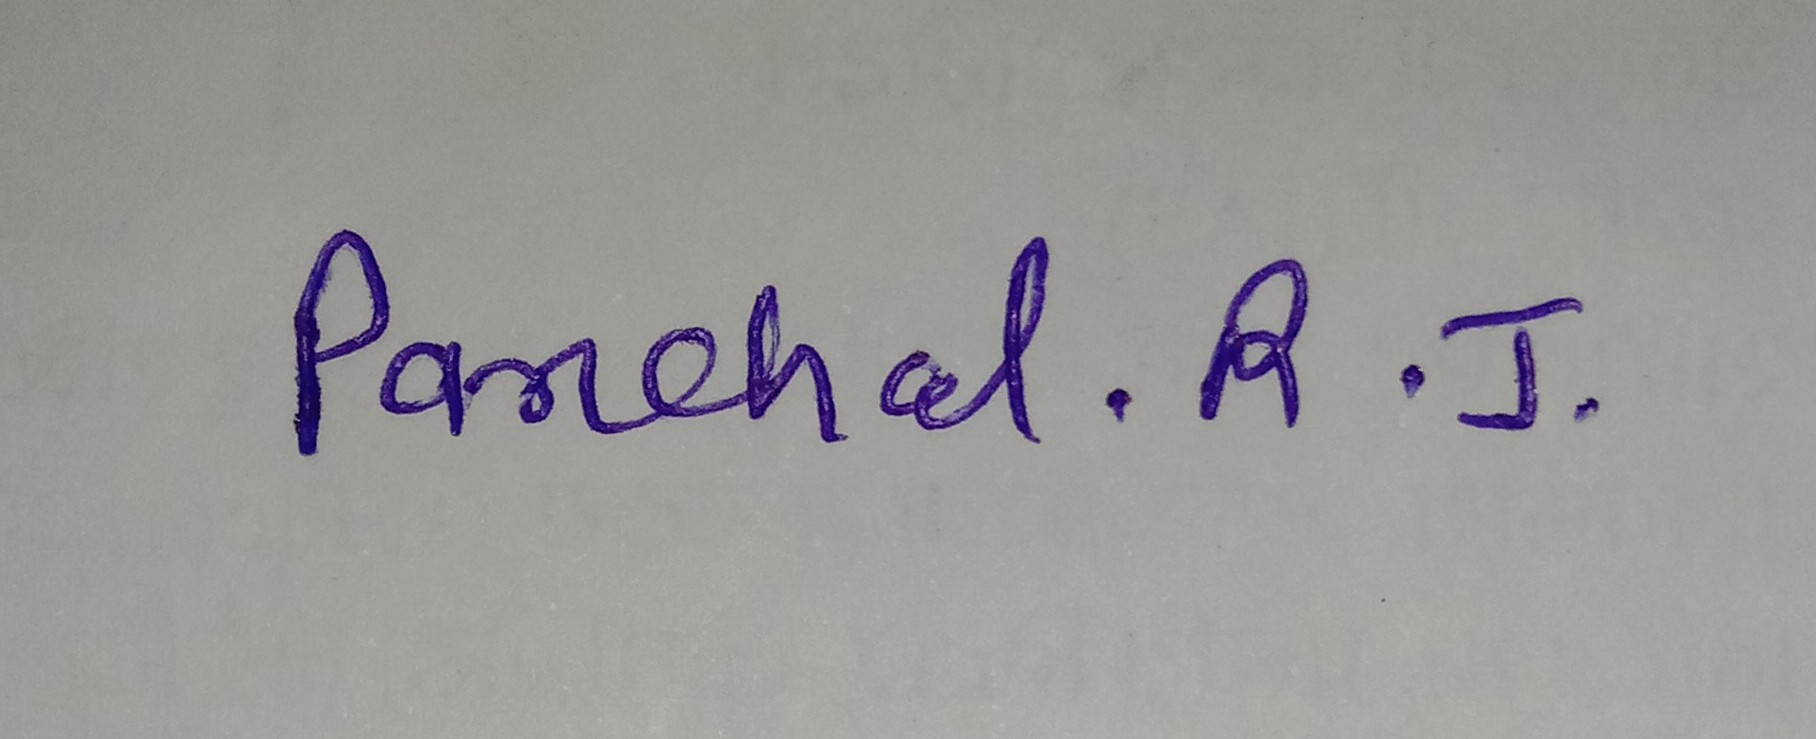 Panchal. R. J.